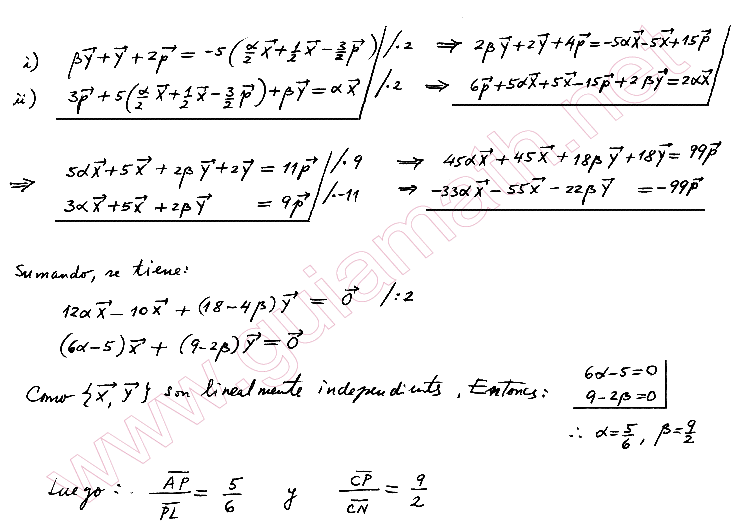 i) βy⃗+y⃗+2p⃗ = -5(α/2 x⃗+1/2 x⃗-3/2 p⃗) /·2 ⇒ 2βy⃗+2y⃗+4p⃗=-5αx⃗-5x⃗+15p⃗
ii) 3p⃗+5(α/2 x⃗+1/2 x⃗-3/2 p⃗)+βy⃗=αx⃗ /·2 ⇒ 6p⃗+5αx⃗+5x⃗-15p⃗+2βy⃗=2αx⃗
⇒ 5αx⃗+5x⃗+2βy⃗+2y⃗=11p⃗ /·9 → 45αx⃗+45x⃗+18βy⃗+18y⃗=99p⃗
3αx⃗+5x⃗+2βy⃗ = 9p⃗ /·-11 → -33αx⃗-55x⃗-22βy⃗ =-99p⃗
Sumando, se tiene:
12αx⃗-10x⃗+(18-4β)y⃗ = 0⃗ /:2
(6α-5)x⃗+(9-2β)y⃗=0⃗
Como {x⃗, y⃗} son linealmente independients, Entonces: 6α-5=0
9-2β=0
∴ α=5/6, β=9/2
Luego: AP/PL = 5/6 y CP/CN = 9/2
www.guiamath.net